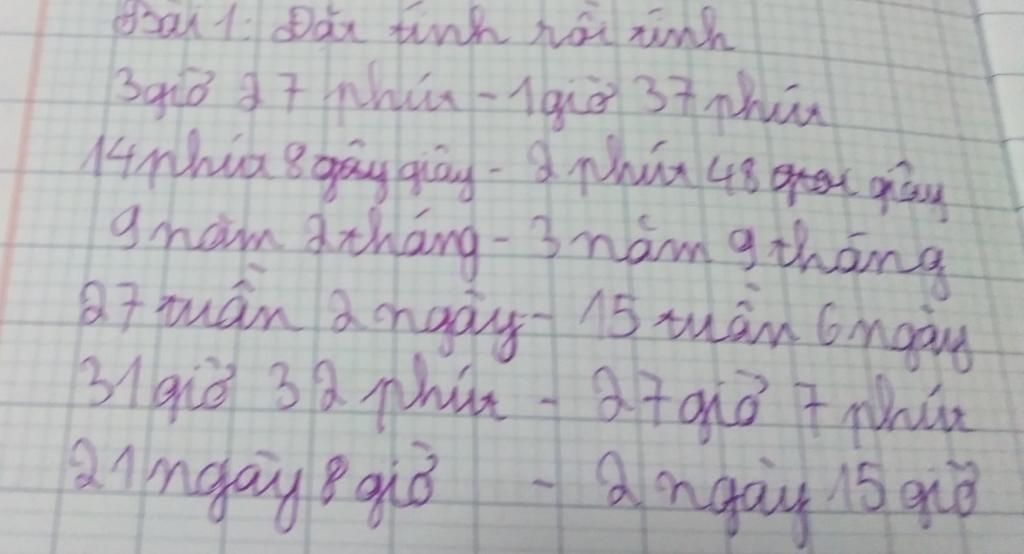 Bài 1: Đặt tính rồi tính
3giờ 27 phút - 1giờ 37 phút
14 phút 8 gây giây - 2 phút 48 giây
9 năm 2 tháng - 3 năm 9 tháng
27 tuần 2 ngày - 15 tuần 6 ngày
31 giờ 32 phút - 27 giờ 7 phút
21 ngày 8 giờ - 2 ngày 15 giờ